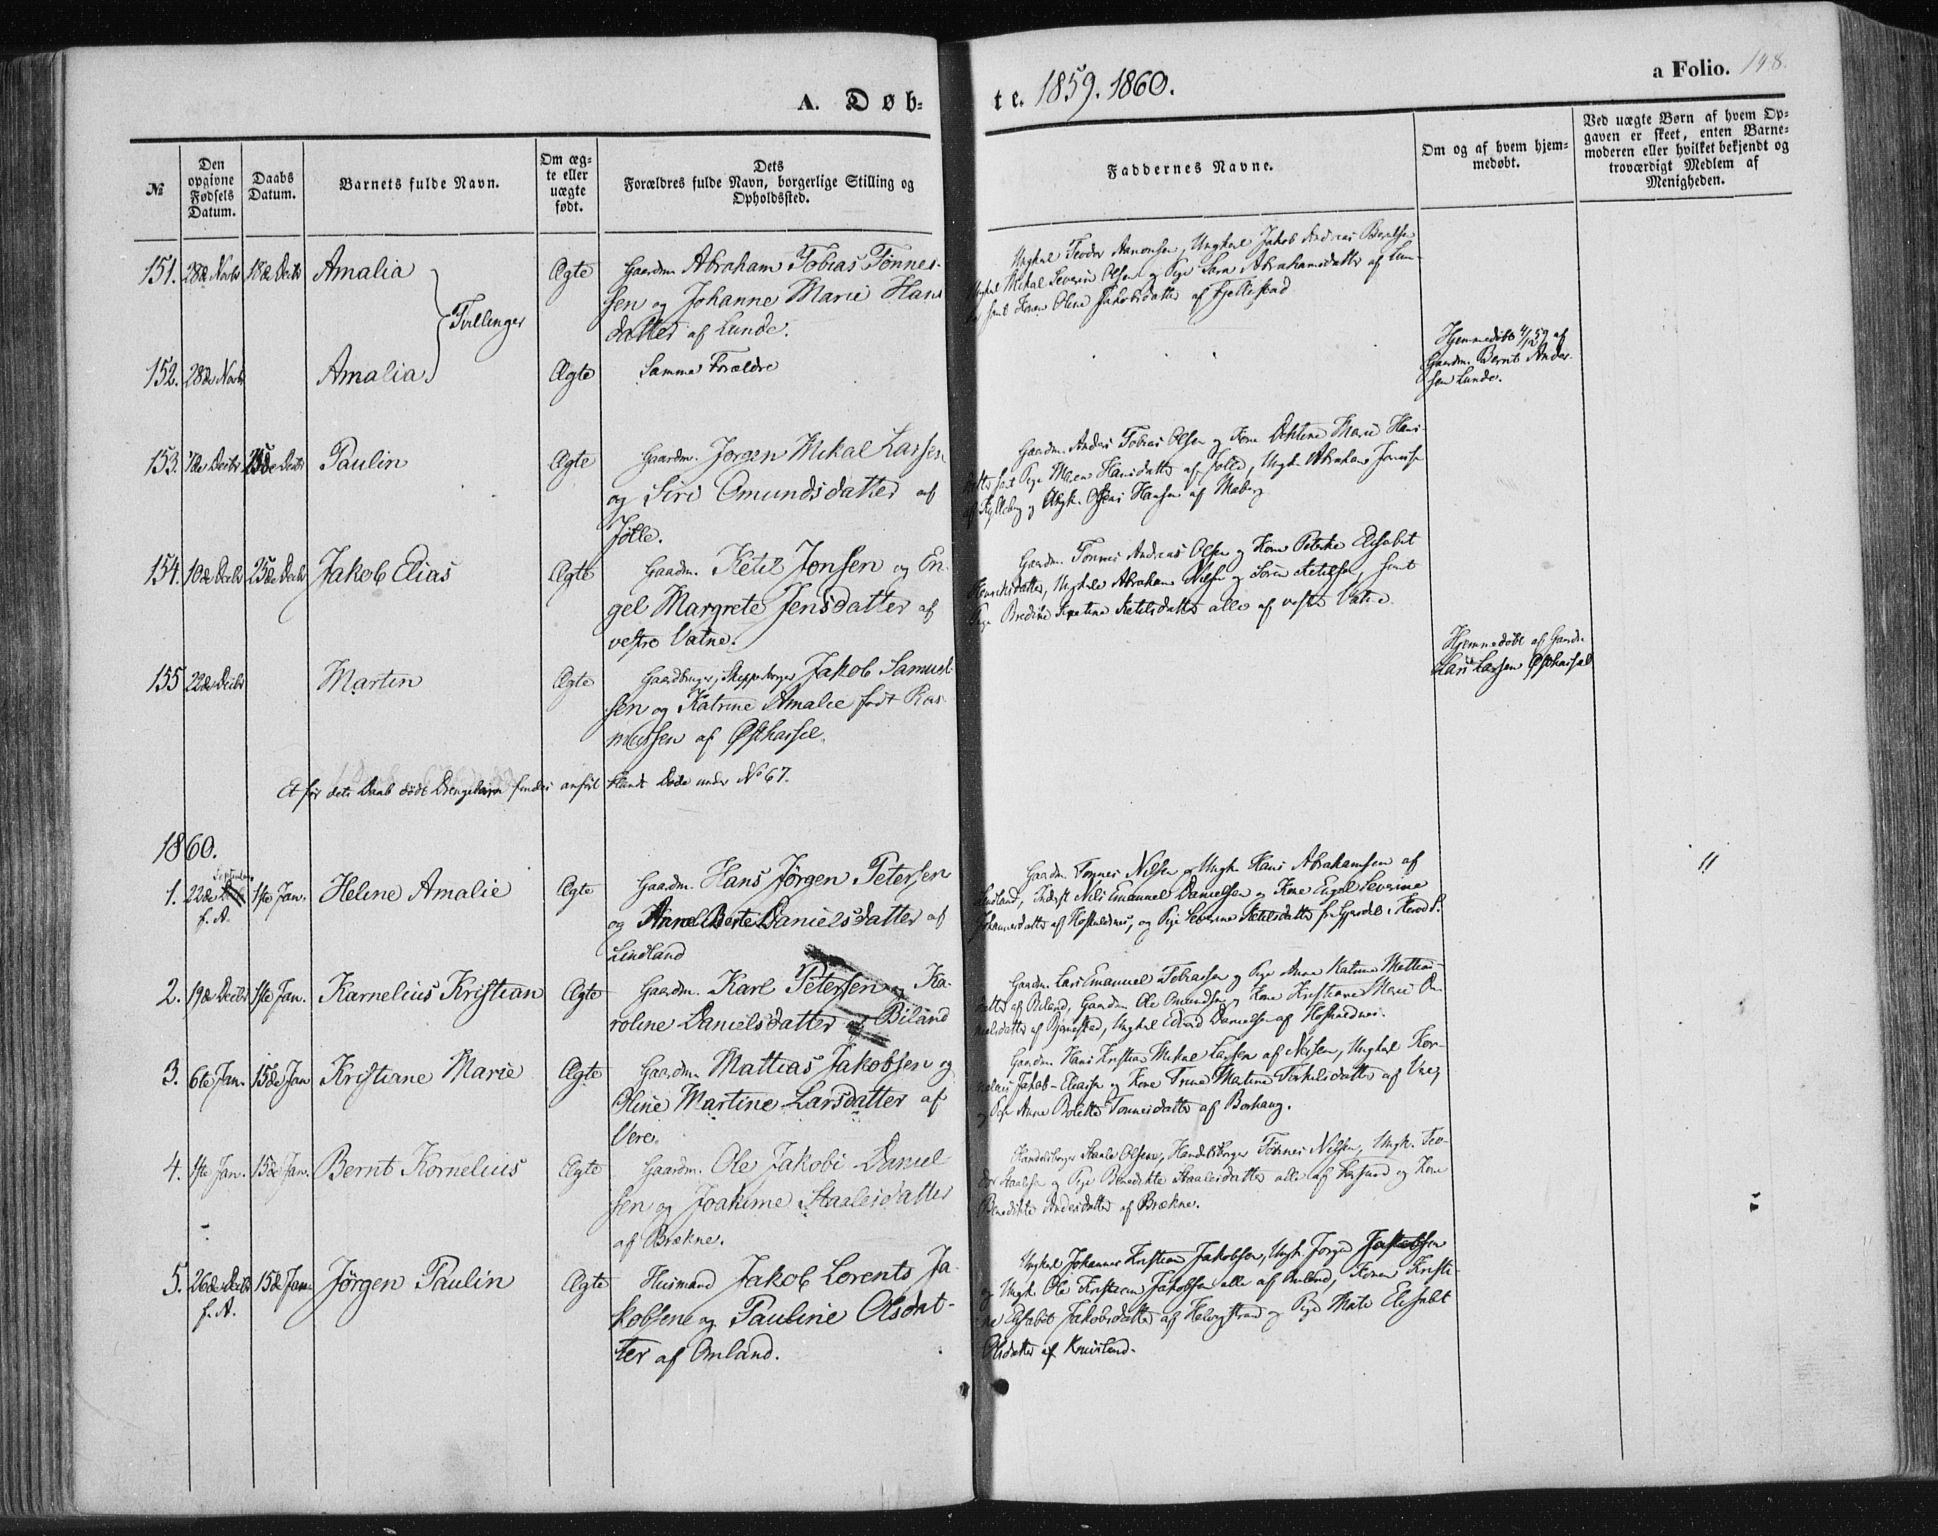 A. Døb-
te. 1859. 1860.
a Folio. 148.
№
Den opgivne Fødsels Datum.
Daabs Datum.
Barnets fulde Navn.
Om ægte eller uægte født.
Dets Forældres fulde Navn, borgerlige Stilling og Opholdssted.
Faddernes Navne.
Om og af hvem hjemmedøbt.
Ved uægte Børn af hvem Opgaven er skeet, enten Barnemoderen eller hvilket bekjendt og troværdigt Medlem af Menigheden.
151. 28de Novbr Decbr Amalia Ægte Gaardm. Abraham Tobias Tønnes-
sen og Johanne Marie Hans
datter af Lunde.
Tvillinger
Ungkarl Teodor Aanonsen, Ungkarl Jakob Andreas Berelsen
Mikal Severin Olsen og Pige Sara Abrahamsdatter af Lun-
de samt Konen Oline Jakobsdatter af Hjellestad
152. 28de Novbr Amalia Ægte Samme Forældre
Hjemmedøbt 4/12 59 af
Gaardm. Bernt Ander-
sen Lunde.
153. Decbr 25de Decbr Paulin Ægte Gaardm. Jørgen Mikal Larsen
og Siri Omundsdatter af
Jølle.
Gaardm. Andreas Tobias Olsen og Kone Marie Hans-
datter samt Pige Maren Hansdatter af Jølle, Ungk. Abraham
og Ungk. Hansen af Maberg
154. 10de Decbr 25de Decbr Jakob Elias Ægte Gaardm. Ketil Jonsen og En-
gel Margrete Jensdatter af
vestre Vatne.
Gaardm. Tønnes Andreas Olsen og Kone Elisabet
Henriksdatter, Ungkarle Abraham Nilsen og Søren Ketilsen, samt
Pige Bredine Ketilsdatter alle af vestre Vatne.
155 22de Decbr Martin Ægte Gaardbruger, Jakob Samuel-
sen og Katrine Amalie født Ras-
mussen af Østhassel.
Hjemmedøbt af Gaardm.
Lars Larsen Østhassel
Et før dets Daab dødt Drengebarn findes anført blandt Døde under No 67.
1860.
1. 22de September f. A. 1ste Jan. Helene Amalie Ægte Gaardm. Hans Jørgen Petersen
og Anne Berte Danielsdatter af
Lindland
Gaardm. Tønnes Nilsen og Ungk. Hans Abrahamsen af
Lindland, Inderst Nils Emanuel Danielsen og Kone Engel Severine
Johannesdatter af, og Pige Severine Ketilsdatter fra
2. 19de Decbr 1ste Jan. Karnelius Kristian Ægte Gaardm. Karl Petersen og Ka-
roline Danielsdatter af Biland
Gaardm. Lars Emanuel Tobiassen og Pige Anne Katrine Mattias-
datter af Biland, Gaardm. Ole Omundsen og Kone Kristiane Marie Da-
nielsdatter af Bjørnestad, Ungkarl Edvard Danielsen af
3. 6te Jan. 15de Jan Kristiane Marie Ægte Gaardm. Mattias Jakobsen og
Oline Martine Larsdatter af
Vere.
Gaardm. Hans Kristian Mikal Larsen af, Ungkarl Kor-
nelius Jakob Eliassen og Kone Trine Martine Terkelsdatter af Vere,
og Pige Anne Bolette Tønnesdatter af Borhaug.
4. 1ste Jan. 15de Jan. Bernt Kornelius Ægte Gaardm. Ole Jakobi Daniel
sen og Joakime Staalesdatter
af Brækne.
Handelsborger Staale Olsen, Handelsborger Tønnes Nilsen, Ungk. Teo-
dor Staalesen og Pige Benedikte Staalesdatter alle af og Kone
Benedikte Andersdatter af Brækne.
5. 26de Decbr f. A. 15de Jan. Jørgen Paulin Ægte Husmand Jakob Lorents Ja-
kobsen og Pauline Olsdat-
ter af Omland.
Ungkarl Johannes Kristian Jakobsen, Ungk. Jørgen Jakobsen
og Ungk. Ole Kristian Jakobsen alle af Omland, Konen Kristi-
ne Elisabet Jakobsdatter af og Pige Mate Elisabet
Olsdatter af